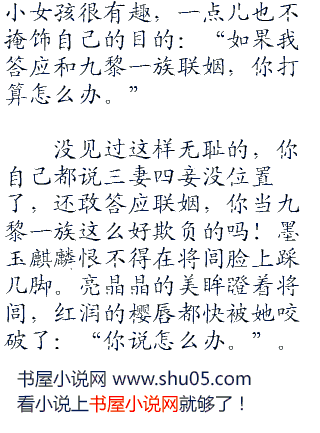 小女孩很有趣，一点儿也不
掩饰自己的目的：“如果我
答应和九黎一族联姻，你打
算怎么办。”
没见过这样无耻的，你
自己都说三妻四妾没位置
了，还敢答应联姻，你当九
黎一族这么好欺负的吗！墨
玉麒麟恨不得在将闾脸上踩
几脚。亮晶晶的美眸瞪着将
闾，红润的樱唇都快被她咬
破了：“你说怎么办。”。
书屋小说网 www.shu05.com
看小说上书屋小说网就够了！